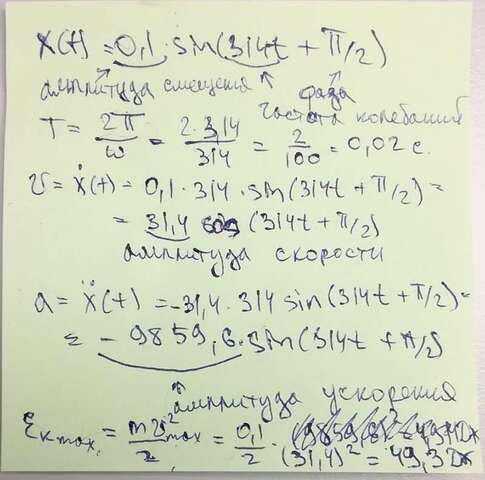 x(t) = 0,1 · sin(314t + π/2)
амплитуда смещения фаза
частота колебаний
T = 2π/ω = 2·3,14/314 = 2/100 = 0,02 с.
v = ẋ(t) = 0,1 · 314 · sin(314t + π/2) =
= 31,4 cos (314t + π/2)
амплитуда скорости
a = ẍ(t) = -31,4 · 314 sin(314t + π/2) =
= -9859,6 · sin(314t + π/2)
амплитуда ускорения
Eк max. = mv²max/2 = 0,1/2 · (31,4)² = 49,3 Дж